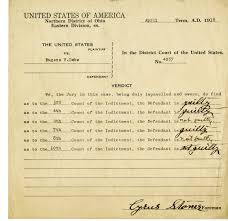 UNITED STATES OF AMERICA
Northern District of Ohio
Eastern Division, ss.
April Term, A.D. 1918
THE UNITED STATES
VERSUS
Eugene V. Debs
In the District Court of the United States.
No. 4057
VERDICT
We, the Jury in this case, being duly impanelled and sworn, do find
as to the Count of the Indictment, the Defendant is guilty
as to the Count of the Indictment, the Defendant is guilty
as to the Count of the Indictment, the Defendant is not guilty
as to the Count of the Indictment, the Defendant is guilty
as to the Count of the Indictment, the Defendant is not guilty
as to the 10th Count of the Indictment, the Defendant is not guilty
Cyrus Stoner Foreman